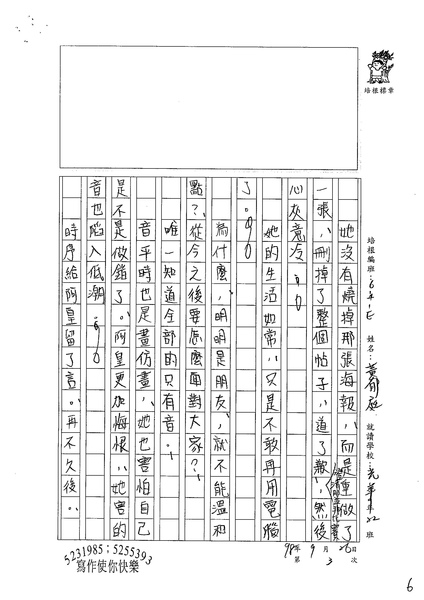 培根標章
培根編班：
姓名：黃郁庭
就讀學校：光華
年
班
她沒有燒掉那張海報，而是重做了
一張，刪掉了整個帖子，道了歉，然後
心灰意冷。
她的生活如常，只是不敢再用電腦
了。
為什麼，明明是朋友，就不能溫和
點？從今之後要怎麼面對大家？
唯一知道全部的只有音。
音平時也是畫仿畫，她也害怕自己
是不是做錯了。阿皇更加悔恨，她害的
音也陷入低潮。
時序給阿皇留了言。再不久後。
98年9月26日
第3次
5231985；5255393
寫作使你快樂
6